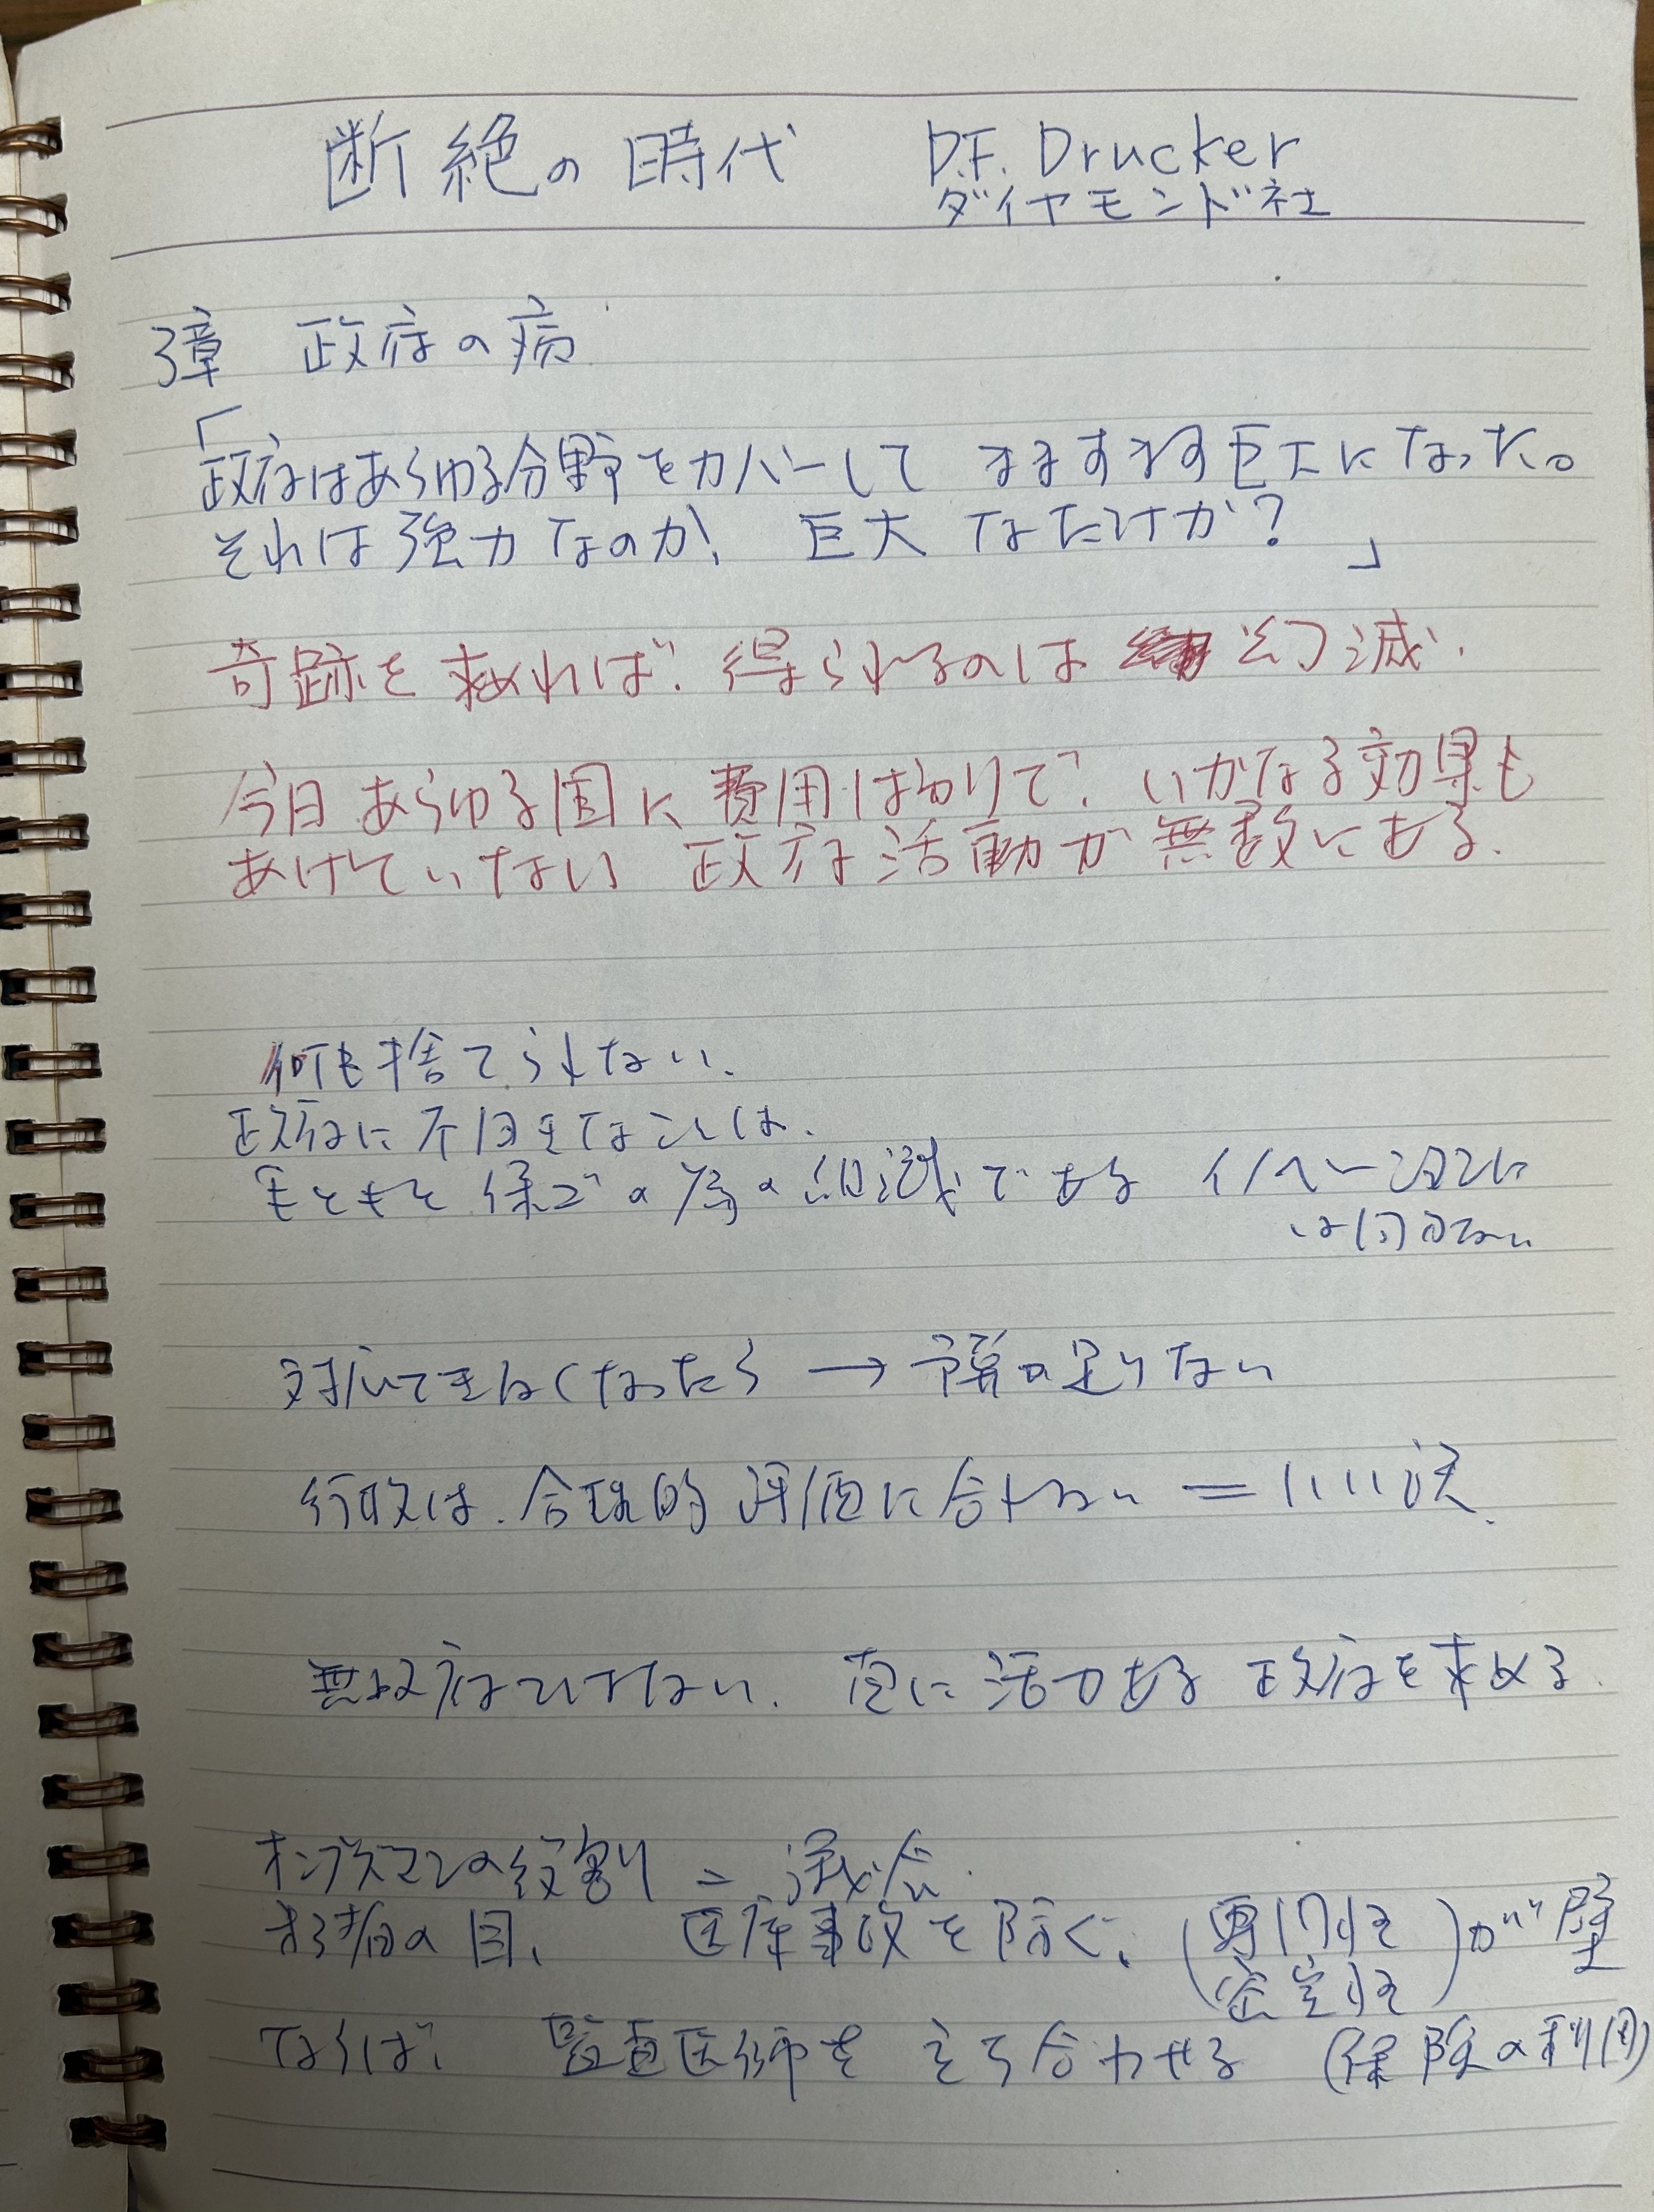 断絶の時代 P.F. Drucker
ダイヤモンド社
3章 政府の病
「政府はあらゆる分野をカバーして ますます巨大になった。
それは強力なのか、巨大なだけか？」
奇跡を求めれば、得られるのは 幻滅、
今日 あらゆる国に費用ばかりで、いかなる効果も
あげていない 政府活動が無数にある、
何も捨てられない、
政府に不得手なことは、
もともと 保ゴの為の組織である イノベーションに
は向かない
対応できなくなったら → 予算の足りない
行政は、合理的 評価に合わない =
無政府ではない、真に活力ある 政府を求める、
オンブズマンの役割 =
の国、 医療事故を防ぐ、(専門性
密室性)が壁
ならば、 監査医師を立ち合わせる (保険の利用)